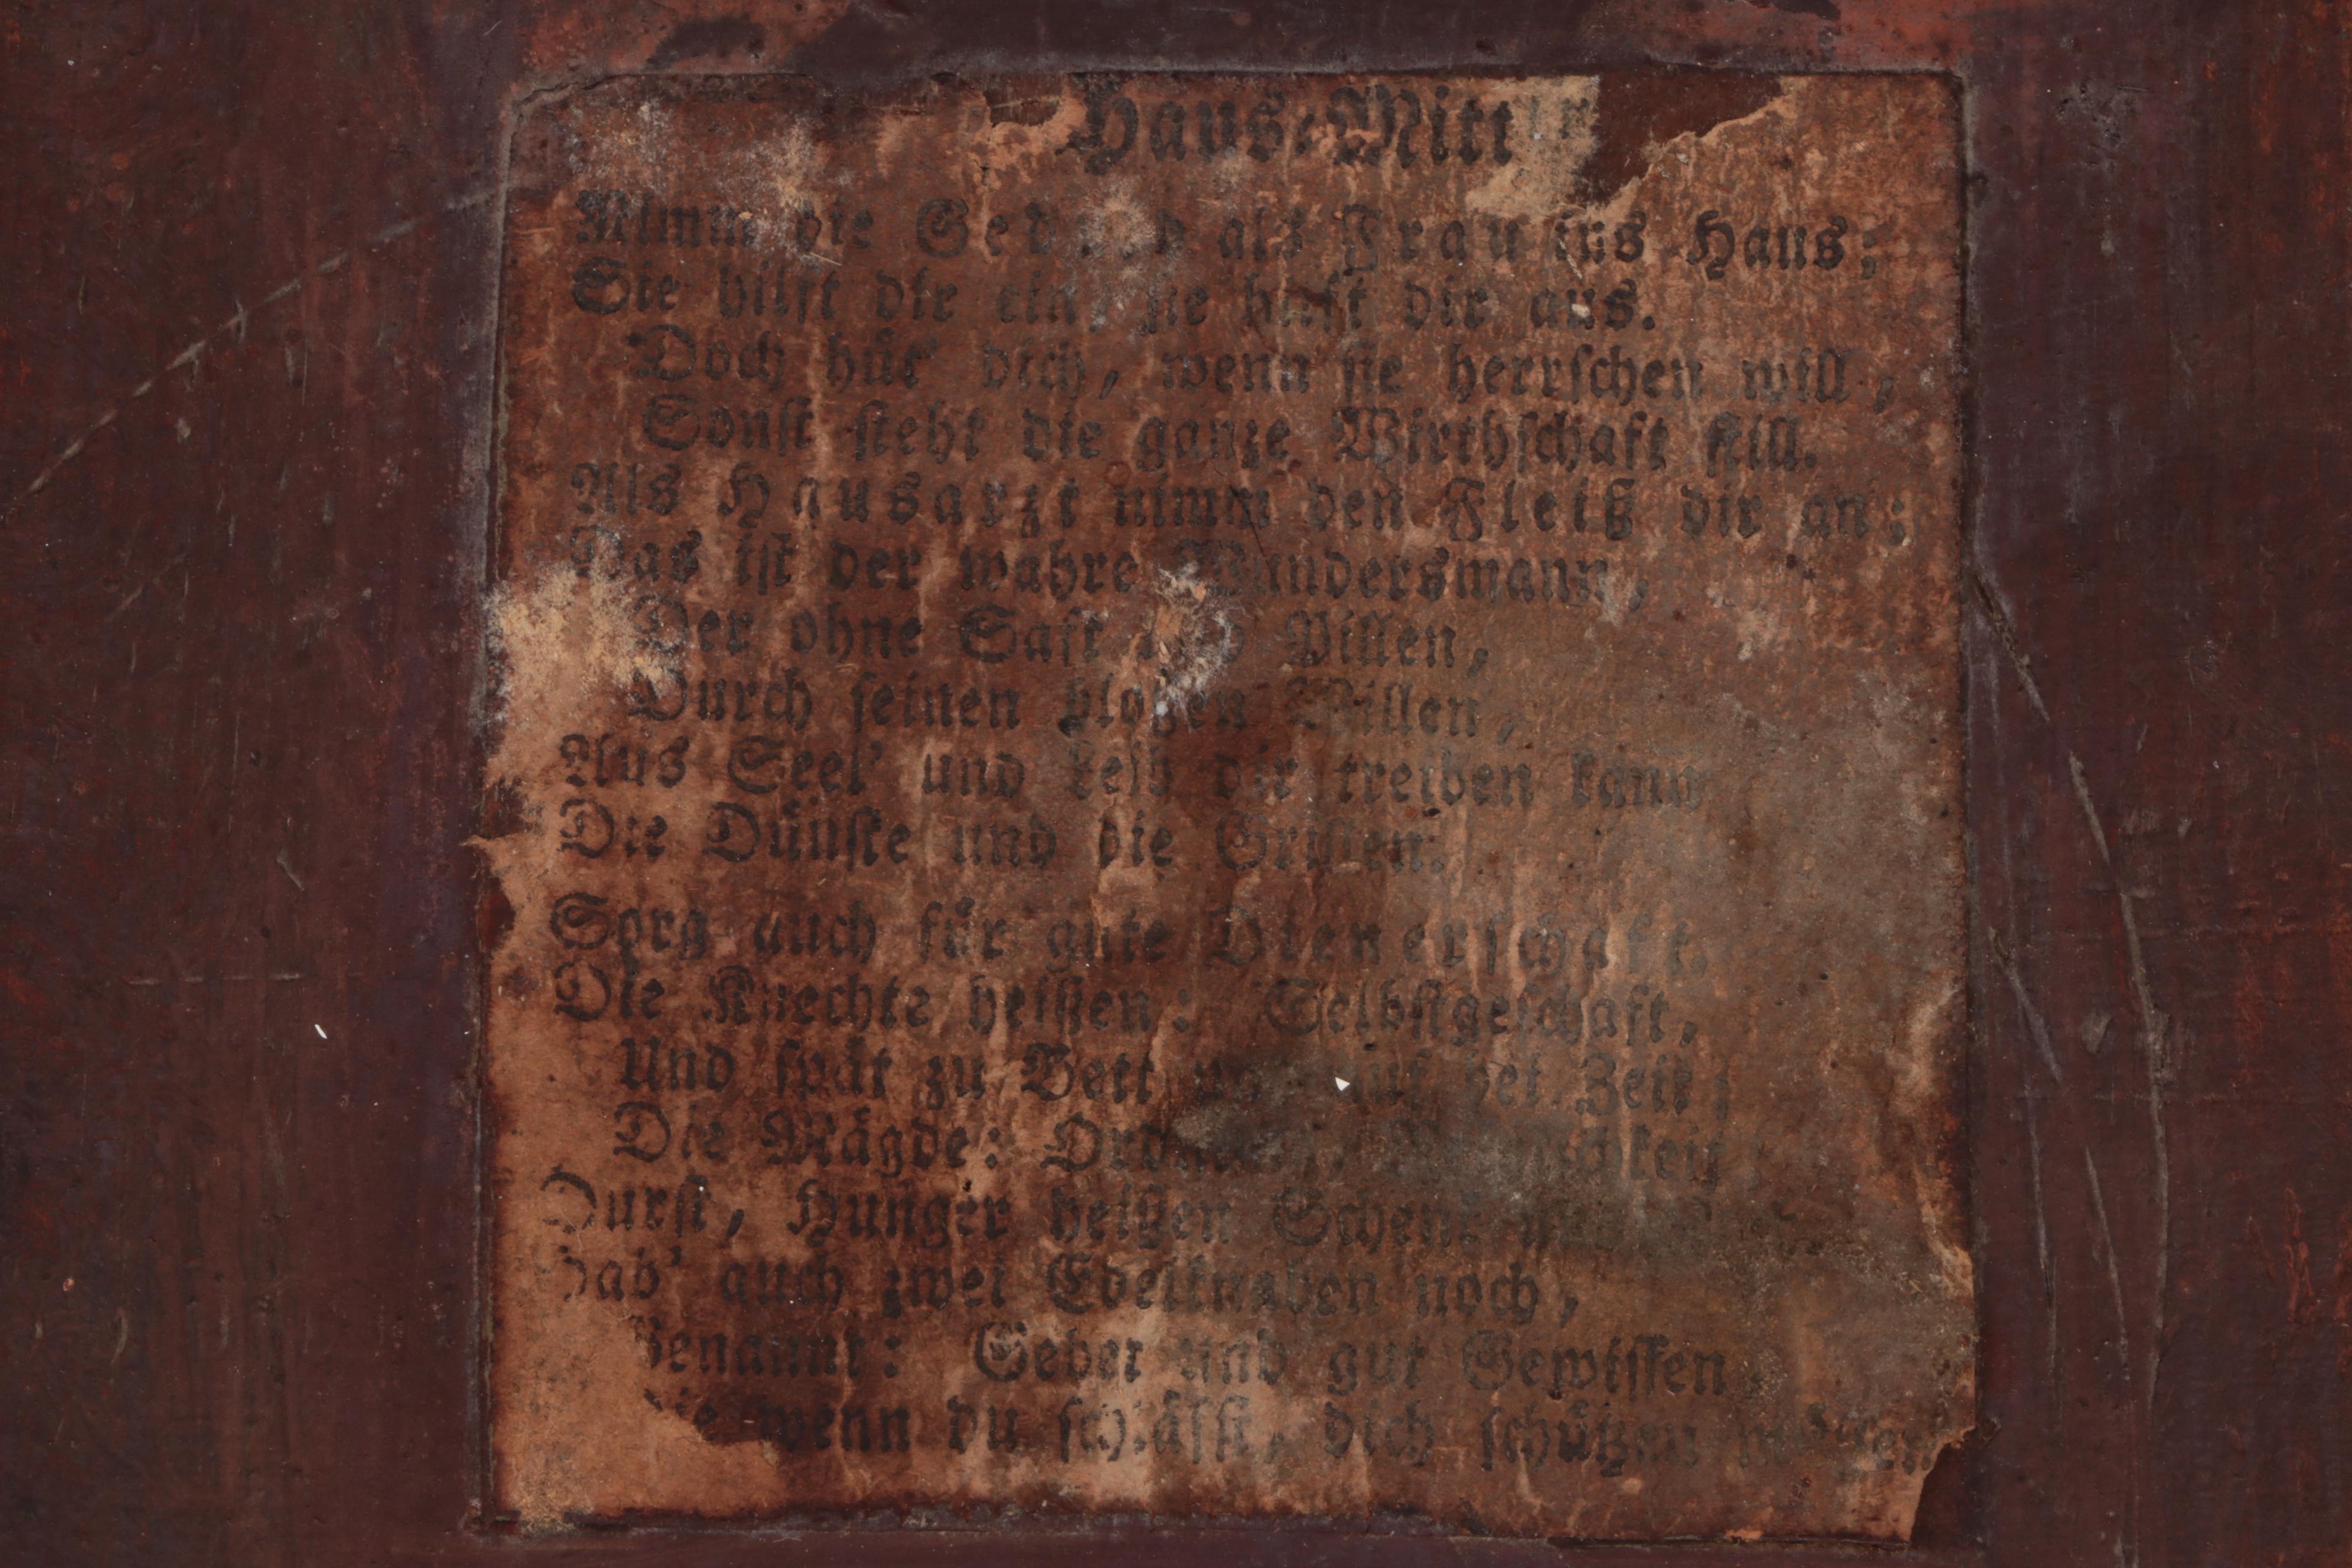 Haus-Mitt
Nimm die als Frau ins Haus;
Sie hilft dir ein, sie hilft dir aus.
Doch hüt' dich, wenn sie herrschen will,
Sonst steht die ganze Wirthschaft still.
Als Hausarzt nimm den Fleiß dir an;
Das ist der wahre Wundersmann,
Der ohne Saft Pillen,
Durch seinen bloßen Willen,
Aus Seel' und Leib dir treiben kann
Die Dünste und die Grillen.
Sorg auch für gute Dienerschaft.
Die Knechte heissen: Selbstgeschaft,
Und spät zu Bett Zeit;
Die Mägde:
Durst, Hunger heißen Schenk
Hab' auch zwei Edelknaben noch,
Benannt: Gebet und gut Gewissen,
Die wenn du schläfst, dich schützen